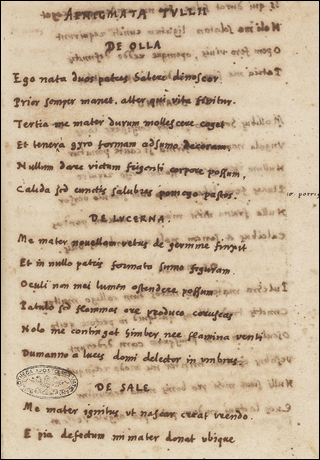 AENIGMATA TVLLII
DE OLLA
Ego nata duos patres habere dinoscor
Prior semper manet. alter qui vita finitur.
Tertia me mater duram mollescere cogit
Et tenera gyro formam adsumo decoram
Nullum dare victum frigenti corpore possum
Calida sed cunctis salubres porrigo pastos.
DE LVCERNA
Me mater novellam vetus de germine finxit
Et in nullo patris formato sumo figuram
Oculi non mei lumen ostendere possum
Patulo sed flammas ore produco coruscas
Nolo me contingat himber nec flamina venti
Dum amo luces domi delector in umbras
DE SALE
Me mater ignitus ut nascar creat
E pia defectum mater donat ubique